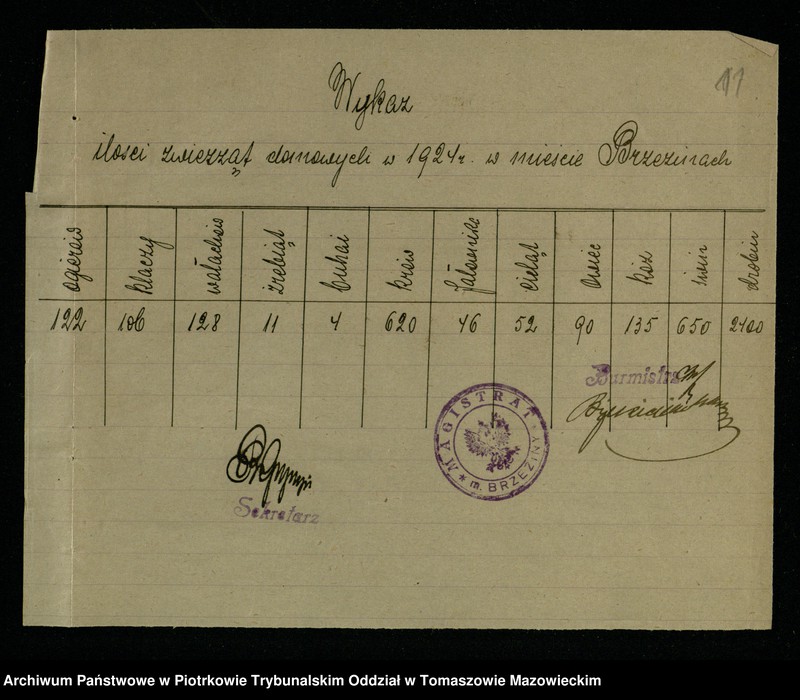 11
Wykaz
ilości zwierząt domowych w 1924 r. w mieście Brzezinach
ogierów klaczy wałachów źrebiąt buhai krów jałownika cieląt owiec kóz świń drobiu
122 106 128 11 4 620 46 52 90 135 650 2400
Burmistrz
MAGISTRAT
* m. BRZEZINY *
Sekretarz
Archiwum Państwowe w Piotrkowie Trybunalskim Oddział w Tomaszowie Mazowieckim